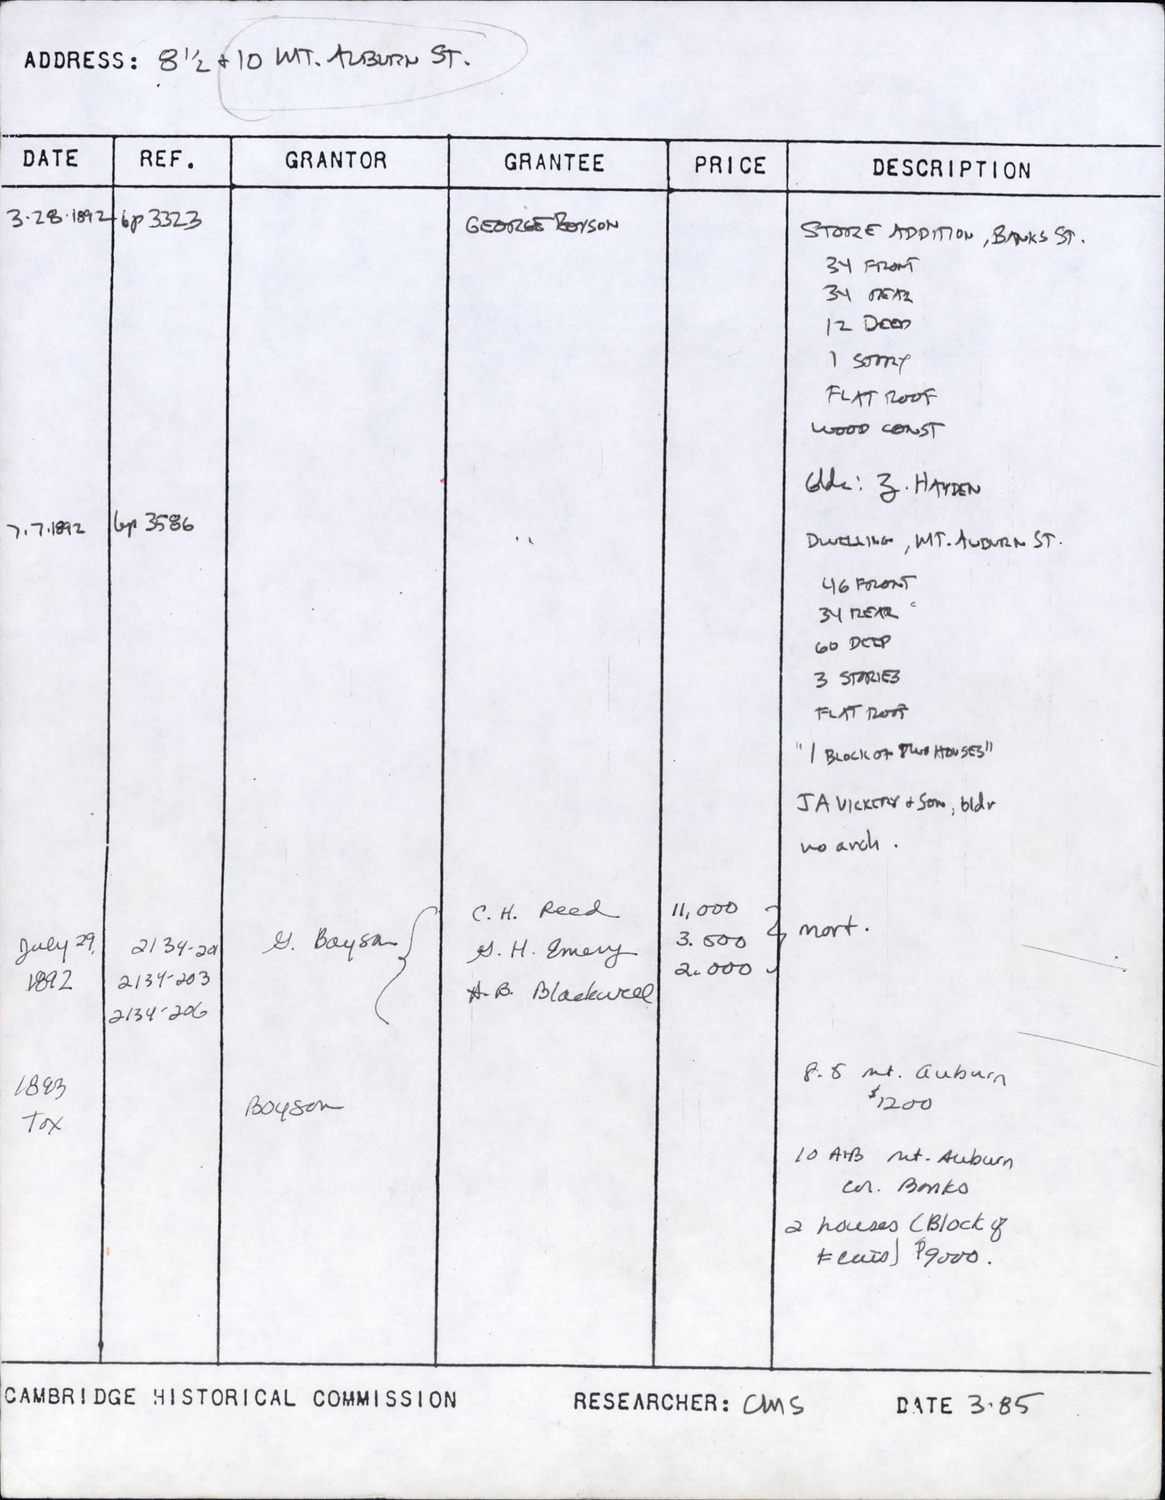 ADDRESS: 8 1/2 + 10 MT. AUBURN ST.
DATE REF. GRANTOR GRANTEE PRICE DESCRIPTION
3.28.1892 bp 3323 GEORGE BOYSON STORE ADDITION, BANKS ST.
34 FRONT
34 REAR
12 DEEP
1 STORY
FLAT ROOF
WOOD CONST
bldr: Z. HAYDEN
7.7.1892 bp 3586 " DWELLING, MT. AUBURN ST.
46 FRONT
34 REAR
60 DEEP
3 STORIES
FLAT ROOF
"1 BLOCK OF TWO HOUSES"
J A VICKERY + SON, bldr
no arch.
July 29, 2134-201 G. Boyson C. H. Reed 11,000 mort.
1892 2134-203 G. H. Emery 3.500
2134-206 A. B. Blackwell 2.000
1893 8.5 mt. Auburn
Tax Boyson $1200
10 A+B mt. Auburn
cor. Banks
2 houses (Block of
Flats) $9000.
CAMBRIDGE HISTORICAL COMMISSION RESEARCHER: CMS DATE 3.85